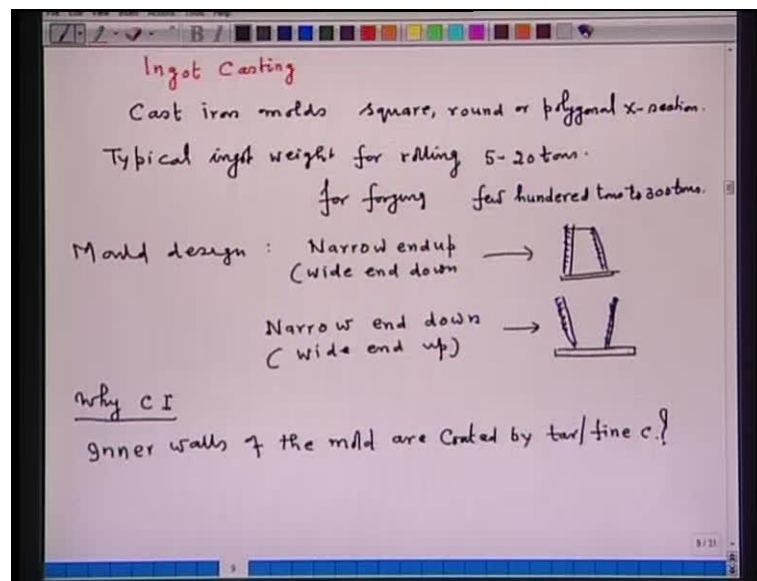 Ingot Casting
Cast iron molds square, round or polygonal x-section.
Typical ingot weight for rolling 5-20 tons.
for forging few hundered tons to 300 tons.
Mould design : Narrow end up
(wide end down
Narrow end down
(wide end up)
Why CI
Inner walls of the mold are coated by tar/fine c.?
9/31
9